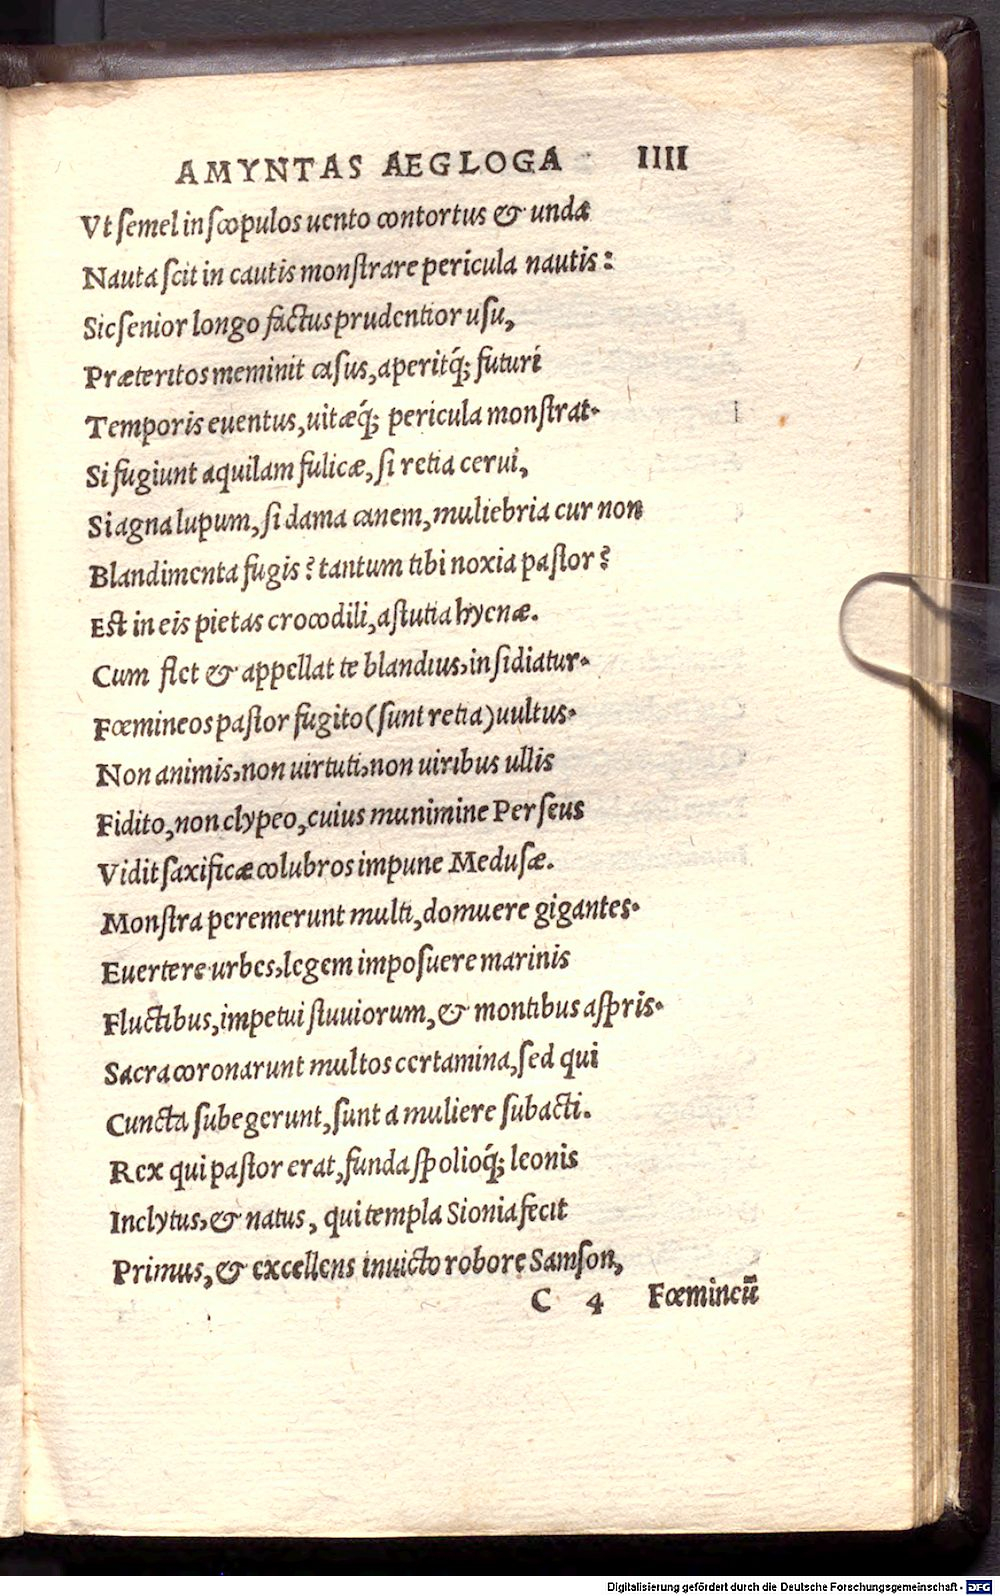 AMYNTAS AEGLOGA IIII
Vt semel in scopulos uento contortus & unda
Nauta scit in cautis monstrare pericula nautis:
Sic senior longo factus prudentior usu,
Præteritos meminit casus, aperitq́; futuri
Temporis euentus, uitæq́; pericula monstrat.
Si fugiunt aquilam fulicæ, si retia cerui,
Si agna lupum, si dama canem, muliebria cur non
Blandimenta fugis? tantum tibi noxia pastor?
Est in eis pietas crocodili, astutia hyenæ.
Cum flet & appellat te blandius, insidiatur.
Fœmineos pastor fugito (sunt retia) uultus.
Non animis, non uirtuti, non uiribus ullis
Fidito, non clypeo, cuius munimine Perseus
Vidit saxificæ colubros impune Medusæ.
Monstra peremerunt multi, domuere gigantes.
Euertere urbes, legem imposuere marinis
Fluctibus, impetui fluuiorum, & montibus aspris.
Sacra coronarunt multos certamina, sed qui
Cuncta subegerunt, sunt a muliere subacti.
Rex qui pastor erat, funda spolioq́; leonis
Inclytus, & natus, qui templa Sionia fecit
Primus, & excellens inuicto robore Samson,
C 4 Fœmineū
Digitalisierung gefördert durch die Deutsche Forschungsgemeinschaft - DFG